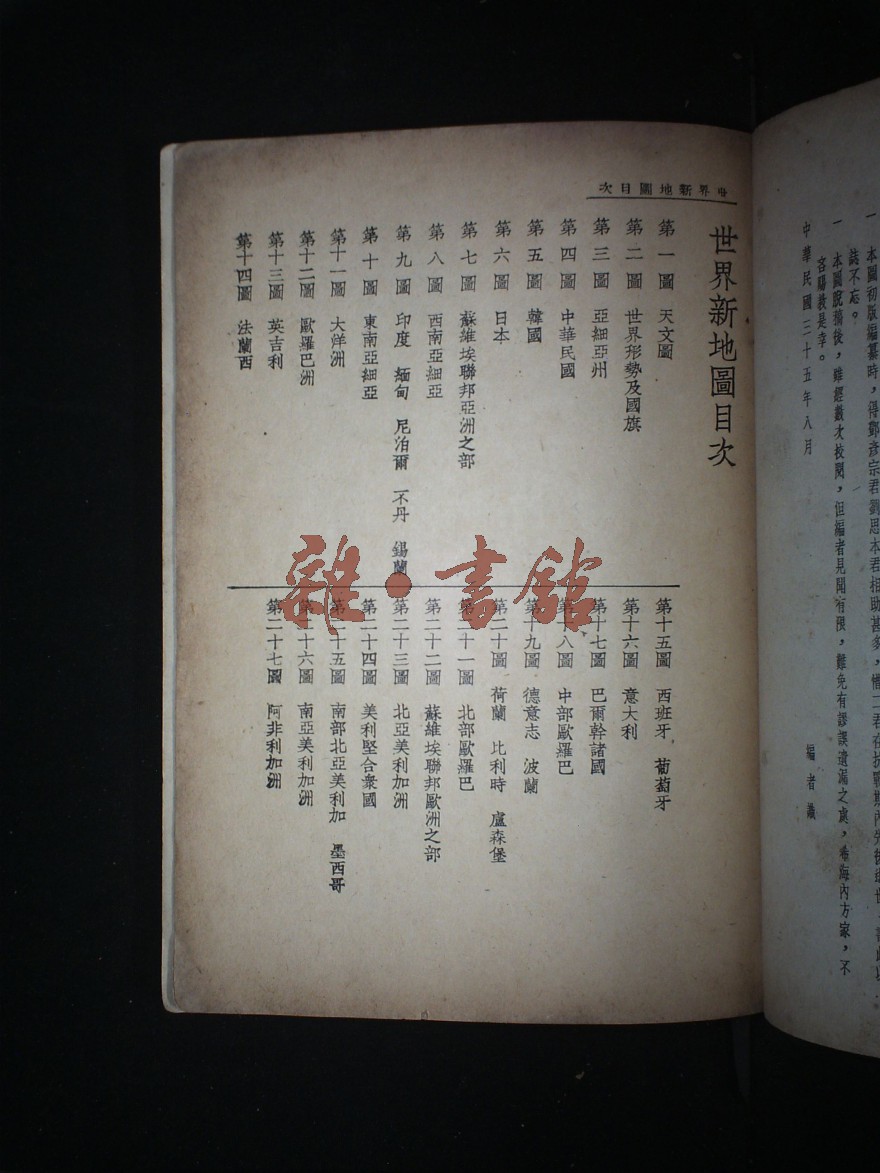 一　本圖初版編纂時，得鄭彥宗君劉思本君相助甚多，惟二君在抗戰期內先後
誌不忘。
一　本圖脫稿後，雖經數次校閱，但編者見聞有限，難免有謬誤遺漏之處，希海內方家，不
吝賜教是幸。
中華民國三十五年八月
編者識
世界新地圖目次
世界新地圖目次
第一圖　天文圖
第二圖　世界形勢及國旗
第三圖　亞細亞州
第四圖　中華民國
第五圖　韓國
第六圖　日本
第七圖　蘇維埃聯邦亞洲之部
第八圖　西南亞細亞
第九圖　印度　緬甸　尼泊爾　不丹　錫蘭
第十圖　東南亞細亞
第十一圖　大洋洲
第十二圖　歐羅巴洲
第十三圖　英吉利
第十四圖　法蘭西
第十五圖　西班牙　葡萄牙
第十六圖　意大利
第十七圖　巴爾幹諸國
第十八圖　中部歐羅巴
第十九圖　德意志　波蘭
第二十圖　荷蘭　比利時　盧森堡
第二十一圖　北部歐羅巴
第二十二圖　蘇維埃聯邦歐洲之部
第二十三圖　北亞美利加洲
第二十四圖　美利堅合衆國
第二十五圖　南部北亞美利加　墨西哥
第二十六圖　南亞美利加洲
第二十七圖　阿非利加洲
雜·書館